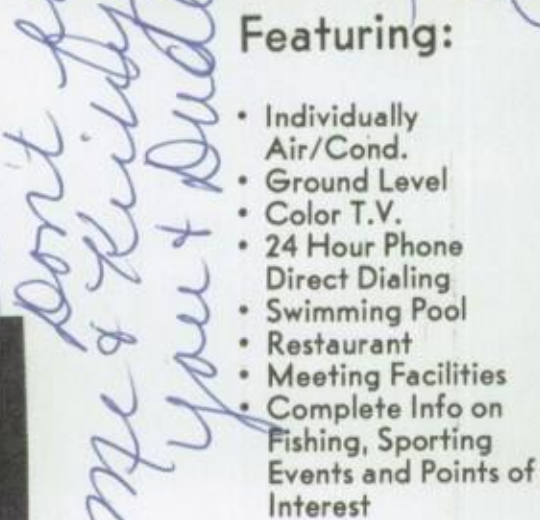 Featuring:
• Individually
Air/Cond.
• Ground Level
• Color T.V.
• 24 Hour Phone
Direct Dialing
• Swimming Pool
• Restaurant
• Meeting Facilities
• Complete Info on
Fishing, Sporting
Events and Points of
Interest
Dont
me &
you +